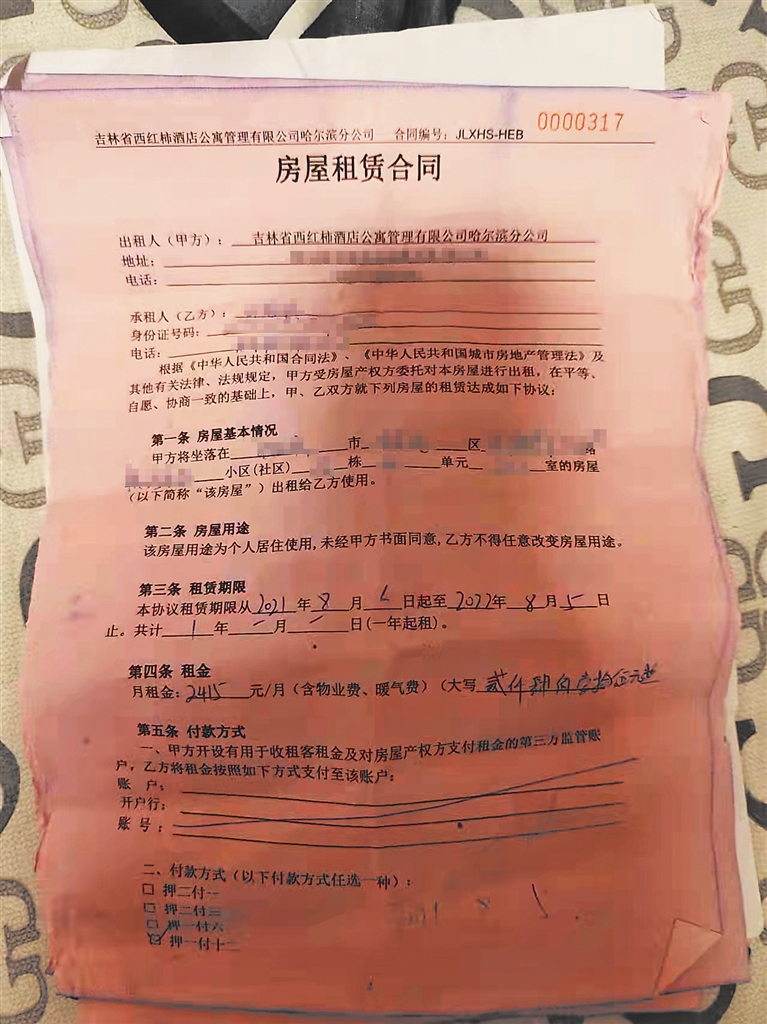 吉林省西红柿酒店公寓管理有限公司哈尔滨分公司 合同编号：JLXHS-HEB 0000317
房屋租赁合同
出租人（甲方）：吉林省西红柿酒店公寓管理有限公司哈尔滨分公司
地址：
电话：
承租人（乙方）：
身份证号码：
电话：
根据《中华人民共和国合同法》、《中华人民共和国城市房地产管理法》及
其他有关法律、法规规定，甲方受房屋产权方委托对本房屋进行出租，在平等、
自愿、协商一致的基础上，甲、乙双方就下列房屋的租赁达成如下协议：
第一条 房屋基本情况
甲方将坐落在 市 区
小区(社区) 栋 单元 室的房屋
（以下简称“该房屋”）出租给乙方使用。
第二条 房屋用途
该房屋用途为个人居住使用,未经甲方书面同意,乙方不得任意改变房屋用途。
第三条 租赁期限
本协议租赁期限从2021年8月6日起至2022年8月5日
止。共计1年-月-日(一年起租)。
第四条 租金
月租金：2415元/月（含物业费、暖气费）（大写贰仟肆佰
第五条 付款方式
一、甲方开设有用于收租客租金及对房屋产权方支付租金的第三方监管账
户，乙方将租金按照如下方式支付至该账户：
账 户：
开户行：
账 号：
二、付款方式（以下付款方式任选一种）：
□ 押二付一
□ 押二付三
□ 押一付六
☑ 押一付十二